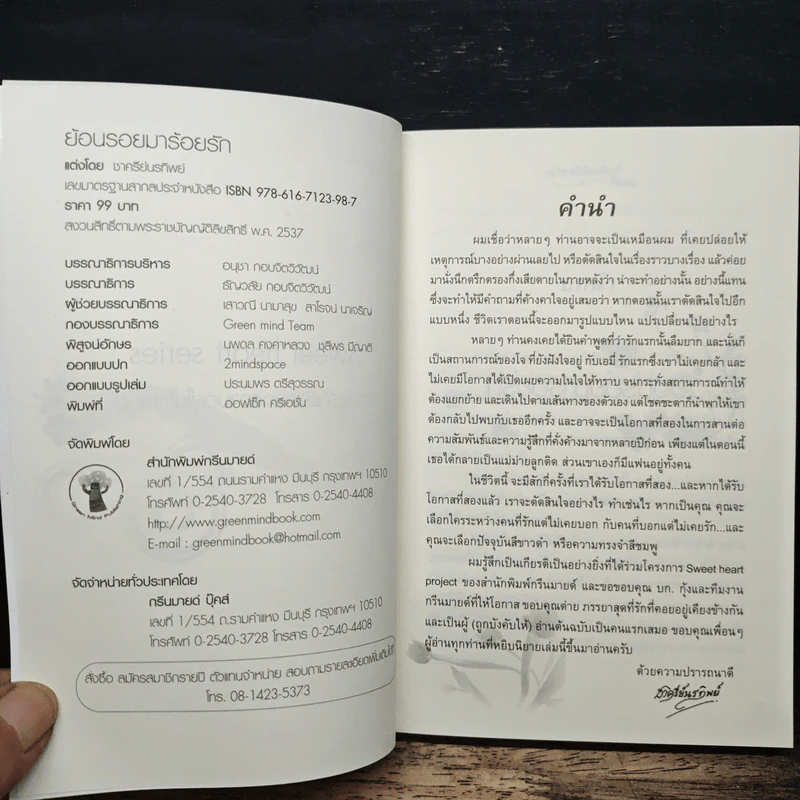 ย้อนรอยมาร้อยรัก
แต่งโดย ชาครีย์นรทิพย์
เลขมาตรฐานสากลประจำหนังสือ ISBN 978-616-7123-98-7
ราคา 99 บาท
สงวนสิทธิ์ตามพระราชบัญญัติลิขสิทธิ์ พ.ศ. 2537
บรรณาธิการบริหาร อนุชา กอบจิตวิวัฒน์
บรรณาธิการ ธัญวลัย กอบจิตวิวัฒน์
ผู้ช่วยบรรณาธิการ เสาวณี นามาสุข สาโรจน์ นาเจริญ
กองบรรณาธิการ Green mind Team
พิสูจน์อักษร นพดล คงคาหลวง ชุลีพร มีญาติ
ออกแบบปก 2mindspace
ออกแบบรูปเล่ม ประนมพร ตรีสุวรรณ
พิมพ์ที่ ออฟเซ็ท ครีเอชั่น
จัดพิมพ์โดย
สำนักพิมพ์กรีนมายด์
เลขที่ 1/554 ถนนรามคำแหง มีนบุรี กรุงเทพฯ 10510
โทรศัพท์ 0-2540-3728 โทรสาร 0-2540-4408
http://www.greenmindbook.com
E-mail : greenmindbook@hotmail.com
Green Mind Publishing
จัดจำหน่ายทั่วประเทศโดย
กรีนมายด์ บุ๊คส์
เลขที่ 1/554 ถ.รามคำแหง มีนบุรี กรุงเทพฯ 10510
โทรศัพท์ 0-2540-3728 โทรสาร 0-2540-4408
สั่งซื้อ สมัครสมาชิกรายปี ตัวแทนจำหน่าย สอบถามรายละเอียดเพิ่มเติมได้ที่
โทร. 08-1423-5373
คำนำ
ผมเชื่อว่าหลายๆ ท่านอาจจะเป็นเหมือนผม ที่เคยปล่อยให้
เหตุการณ์บางอย่างผ่านเลยไป หรือตัดสินใจในเรื่องราวบางเรื่อง แล้วค่อย
มานั่งนึกตรึกตรองกึ่งเสียดายในภายหลังว่า น่าจะทำอย่างนั้น อย่างนี้แทน
ซึ่งจะทำให้มีคำถามที่ค้างคาใจอยู่เสมอว่า หากตอนนั้นเราตัดสินใจไปอีก
แบบหนึ่ง ชีวิตเราตอนนี้จะออกมารูปแบบไหน แปรเปลี่ยนไปอย่างไร
หลายๆ ท่านคงเคยได้ยินคำพูดที่ว่ารักแรกนั้นลืมยาก และนั่นก็
เป็นสถานการณ์ของโจ ที่ยังฝังใจอยู่ กับเอมี่ รักแรกซึ่งเขาไม่เคยกล้า และ
ไม่เคยมีโอกาสได้เปิดเผยความในใจให้ทราบ จนกระทั่งสถานการณ์ทำให้
ต้องแยกย้าย และเดินไปตามเส้นทางของตัวเอง แต่โชคชะตาก็นำพาให้เขา
ต้องกลับไปพบกับเธออีกครั้ง และอาจจะเป็นโอกาสที่สองในการสานต่อ
ความสัมพันธ์และความรู้สึกที่คั่งค้างมาจากหลายปีก่อน เพียงแต่ในตอนนี้
เธอได้กลายเป็นแม่ม่ายลูกติด ส่วนเขาเองก็มีแฟนอยู่ทั้งคน
ในชีวิตนี้ จะมีสักกี่ครั้งที่เราได้รับโอกาสที่สอง...และหากได้รับ
โอกาสที่สองแล้ว เราจะตัดสินใจอย่างไร ทำเช่นไร หากเป็นคุณ คุณจะ
เลือกใครระหว่างคนที่รักแต่ไม่เคยบอก กับคนที่บอกแต่ไม่เคยรัก...และ
คุณจะเลือกปัจจุบันสีขาวดำ หรือความทรงจำสีชมพู
ผมรู้สึกเป็นเกียรติเป็นอย่างยิ่งที่ได้ร่วมโครงการ Sweet heart
project ของสำนักพิมพ์กรีนมายด์ และขอขอบคุณ บก. กุ้งและทีมงาน
กรีนมายด์ที่ให้โอกาส ขอบคุณต่าย ภรรยาสุดที่รักที่คอยอยู่เคียงข้างกัน
และเป็นผู้ (ถูกบังคับให้) อ่านต้นฉบับเป็นคนแรกเสมอ ขอบคุณเพื่อนๆ
ผู้อ่านทุกท่านที่หยิบนิยายเล่มนี้ขึ้นมาอ่านครับ
ด้วยความปรารถนาดี
ชาครีย์นรทิพย์